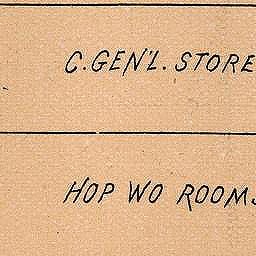 C. GEN'L. STORE
HOP WO ROOMS